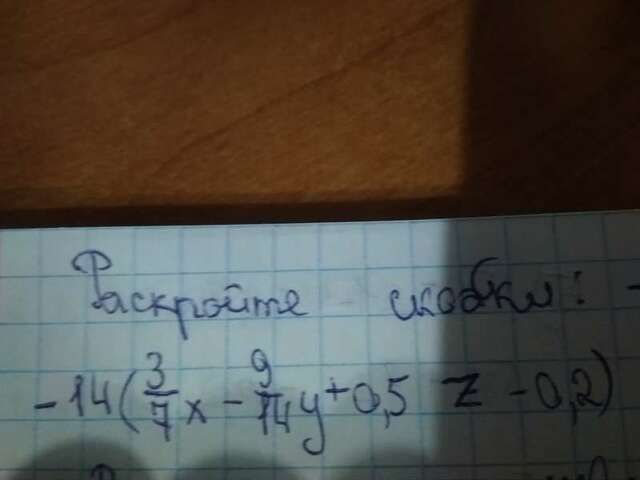 Раскройте скобки:
-14(3/7x - 9/14y + 0,5 z - 0,2)